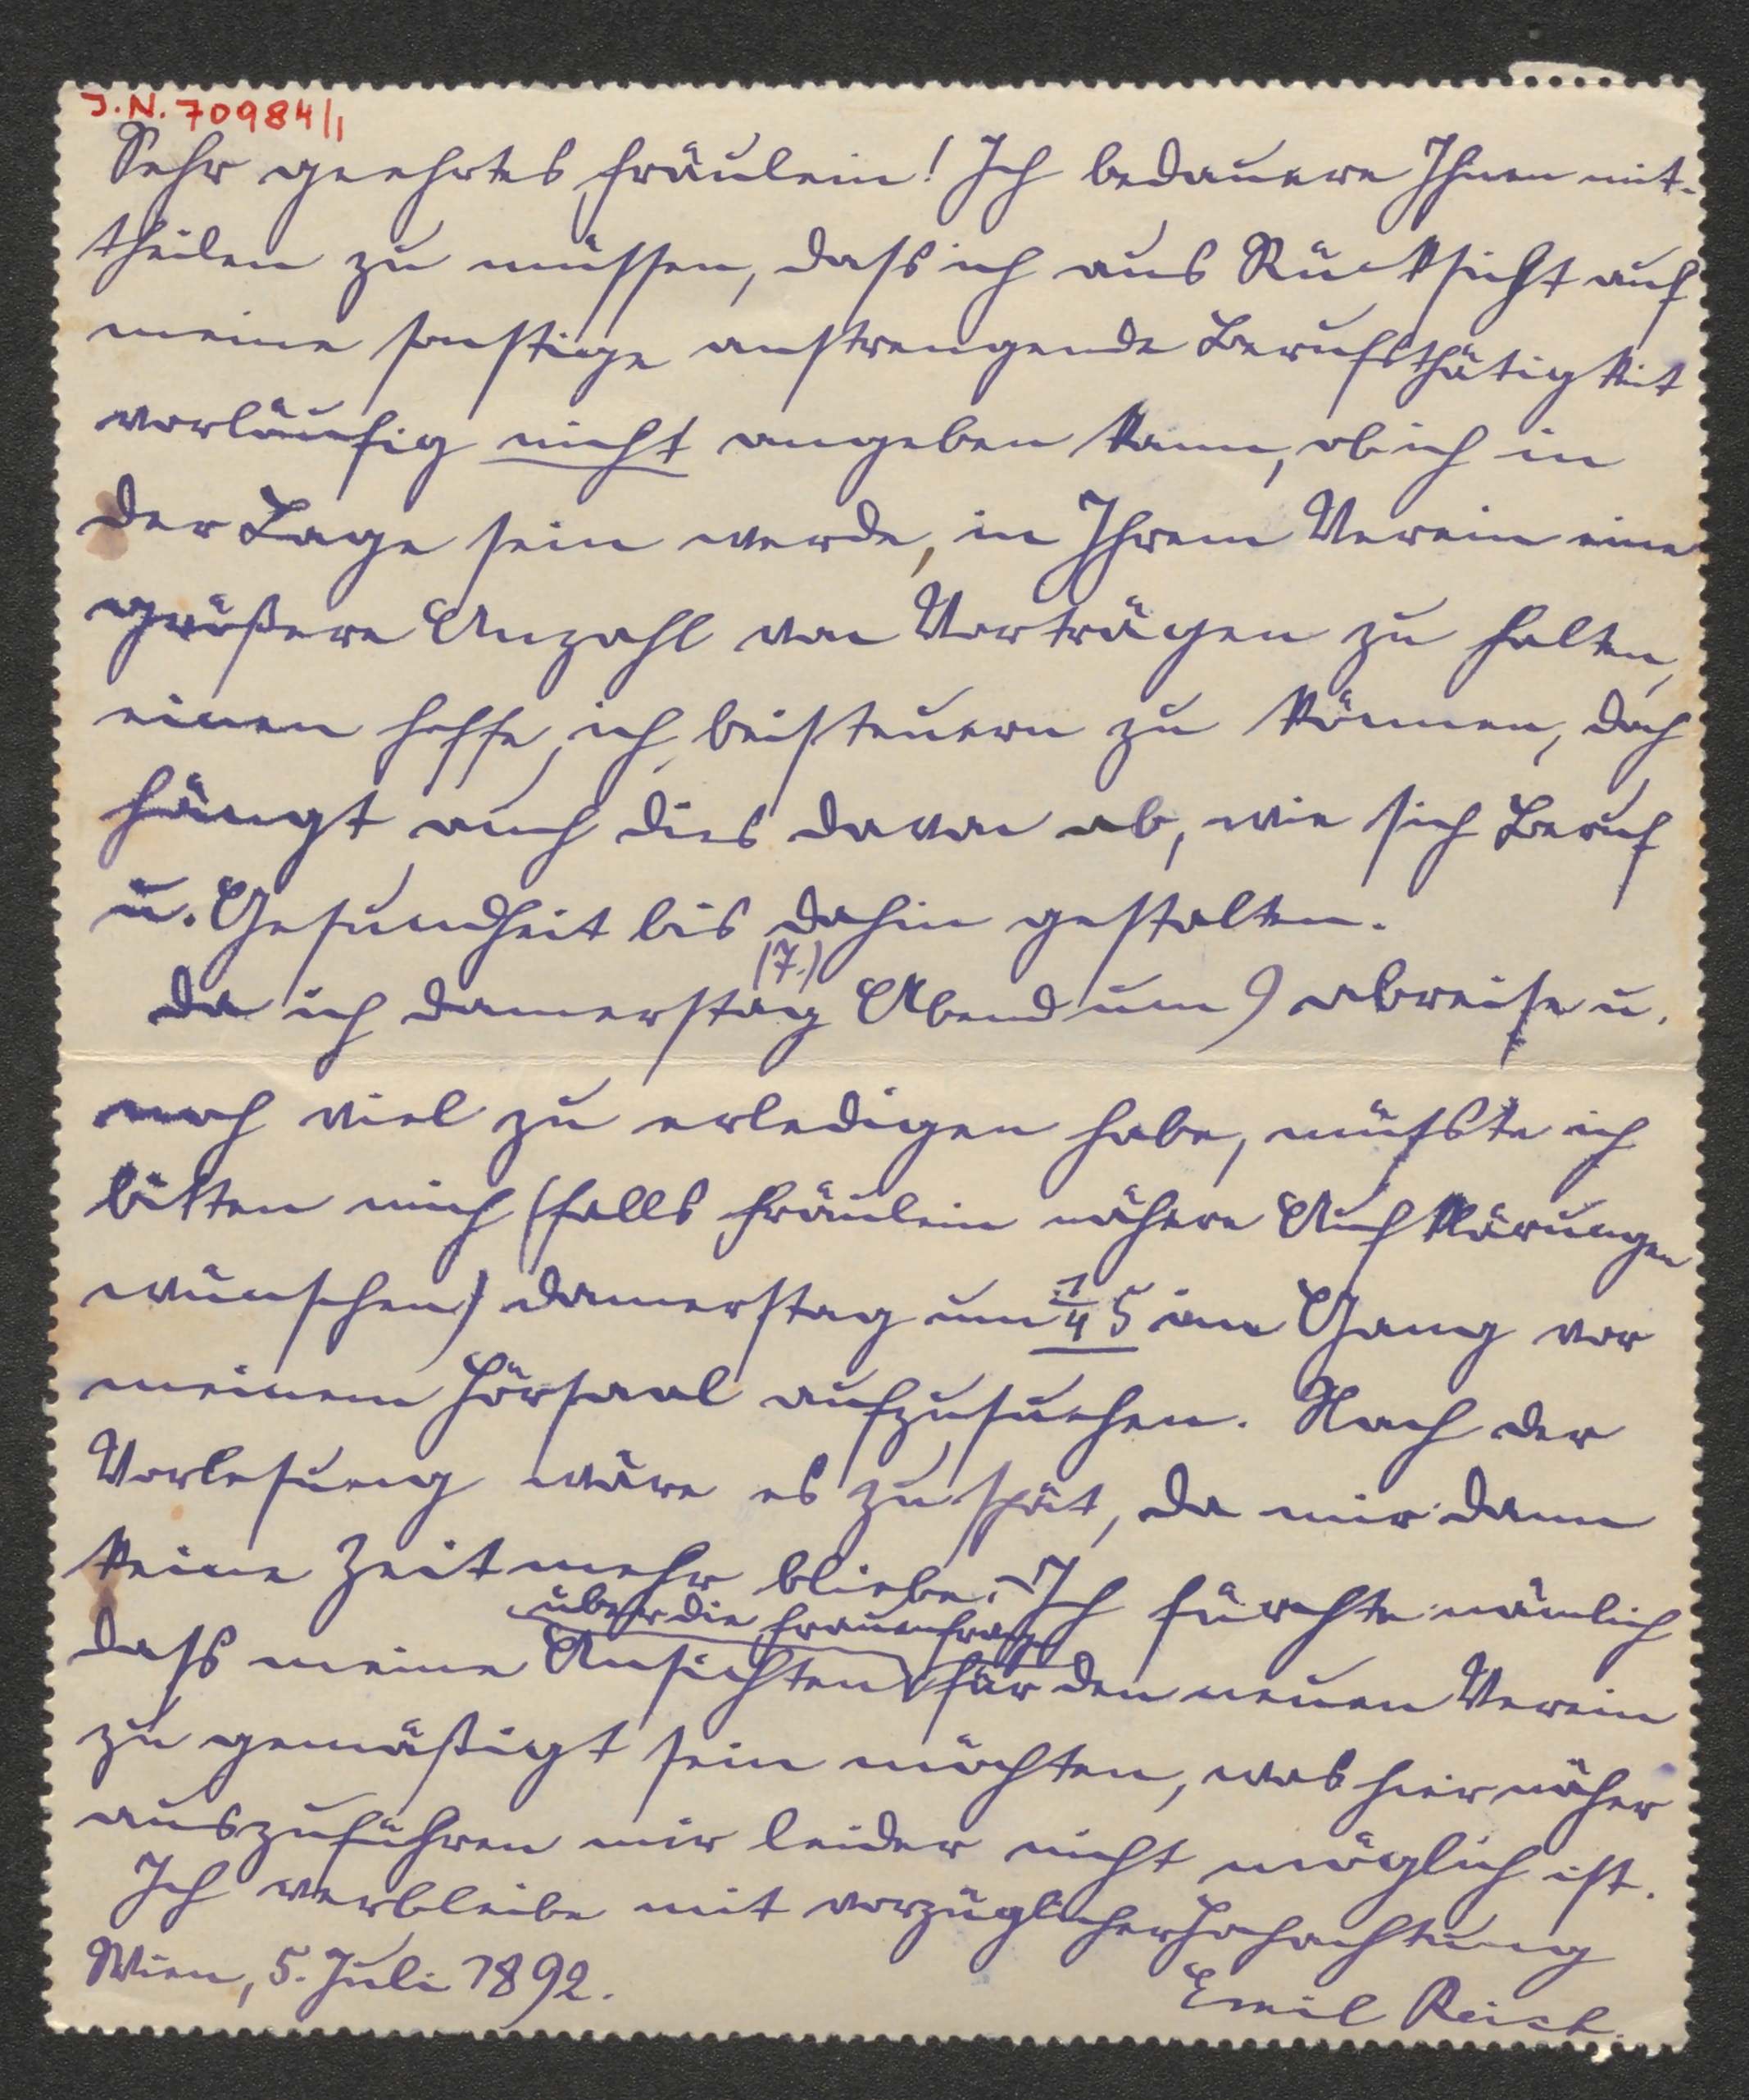 J.N. 70984/1
Sehr geehrtes Fräulein! Ich bedauere Ihnen mit-
theilen zu müssen, dass ich aus Rücksicht auf
meine sonstige anstrengende Berufsthätigkeit
vorläufig nicht angeben kann, ob ich in
der Lage sein werde, in Ihrem Verein eine
größere Anzahl von Vorträgen zu halten,
einen hoffe ich beisteuern zu können, doch
hängt auch dies davon ab, wie sich Beruf
u. Gesundheit bis dahin gestalten.
(7.)
Da ich Donnerstag Abend um 9 abreise u.
noch viel zu erledigen habe, müsste ich
bitten mich (falls Fräulein nähere Aufklärungen
wünschen) Donnerstag um 1/4 5 im Gang vor
meinem Hörsaal aufzusuchen. Nach der
Vorlesung wäre es zu spät, da mir dann
keine Zeit mehr bliebe. – Ich fürchte nämlich
über die Frauenfrage
dass meine Ansichten für den neuen Verein
zu gemäßigt sein möchten, was hier näher
auszuführen mir leider nicht möglich ist.
Ich verbleibe mit vorzüglicher Hochachtung
Wien, 5. Juli 1892.
Emil Reich.